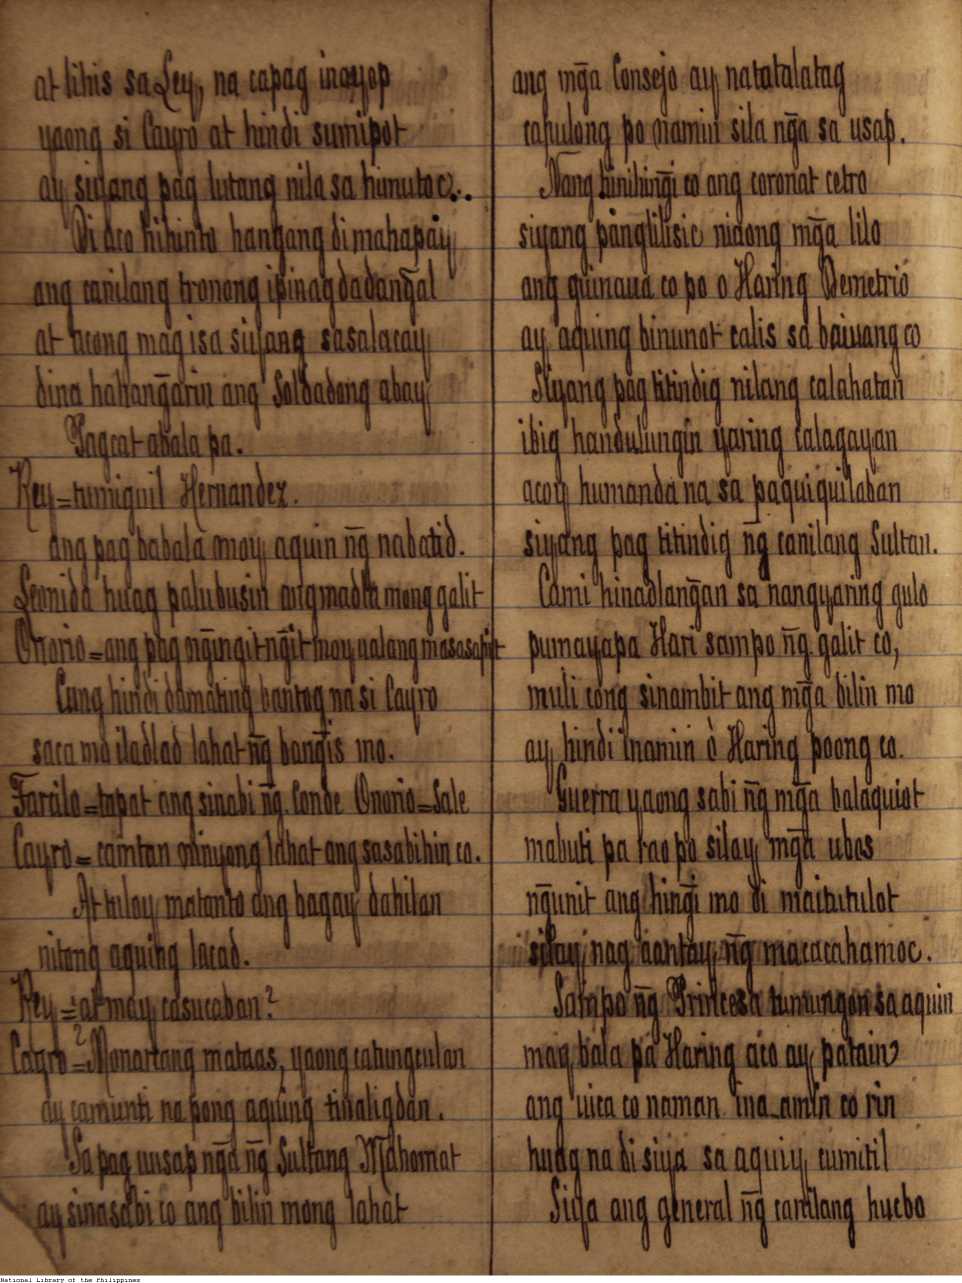 at lihis sa Ley, na capag inayop
yaong si Cayro at hindi sumipot
ay siyang pag lutang nila sa himutoc..
Di aco hihinto hangang di mahapay
ang canilang tronong ipinagdadangal
at acong mag isa siyang sasalacay
dina hahangarin ang Soldadong abay
Pagcat abala pa.
Rey = tumiguil Hernandez.
ang pag babala moy aquin n̄g nabatid.
Leonida huag palubusin ang madla mong galit
Onorio = ang pag n̄gin̄git-n̄git moy ualang masasapit
Cung hindi dumating bantog na si Cayro
saca mo iladlad lahat n̄g bangis mo.
Farilo = tapat ang sinabi n̄g Conde Onorio = Sale
Cayro = camtan ninyong lahat ang sasabihin co.
At tuloy matanto ang bagay dahilan
nitong aquing lacad.
Rey = at may casucaban?
Cayro = Monarcang mataas, yaong catungculan
ay camunti na pong aquing tinaligdan.
Sa pag uusap n̄ga n̄g Sultang Mahomat
ay sinasabi co ang bilin mong lahat
ang mg̃a Consejo ay natatalatag
capulong po namin sila n̄ga sa usap.
Nang hinihin̄gi co ang coronat cetro
siyang pangliлisic nidong mg̃a lilo
ang guinaua co po o Haring Demetrio
ay aquing binunot calis sa baiuang co
Siyang pag titindig nilang calahatan
ibig handulungin yaring calagayan
acoy humanda na sa paquiquilaban
siyang pag titindig n̄g canilang Sultan.
Cami hinadlan̄gan sa nangyaring gulo
pumayapa Hari sampo n̄g galit co,
muli cong sinambit ang mg̃a bilin mo
ay hindi inamin ò Haring poong co.
Guerra yaong sabi n̄g mg̃a balaquiot
mabuti pa rao po silay mg̃a ubos
n̄gunit ang hin̄gi mo di maitutulot
silay nag aantay n̄g macacahamoc.
Sampo n̄g Princesa tumungon sa aquin
mag bala pa Haring aco ay patain
ang uica co naman ina-amin co rin
huag na di siya sa aquiy cumitil
Siya ang general n̄g canilang hucbo